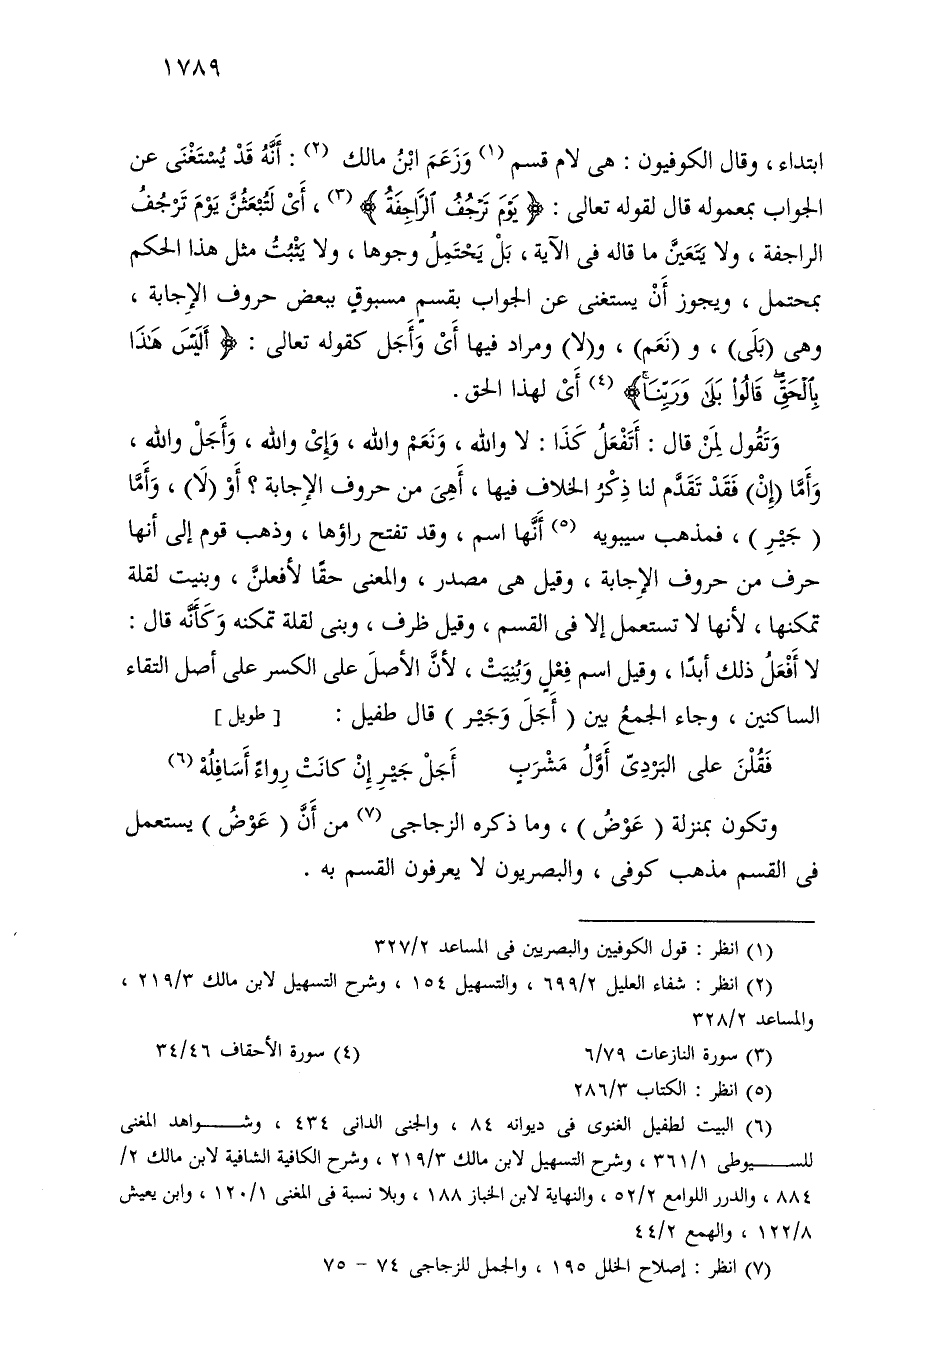 ١٧٨٩
ابتداء ، وقال الكوفيون : هى لام قسم (١) وَزَعَمَ ابْنُ مالك (٢) : أَنَّهُ قَدْ يُسْتَغْنَى عن
الجواب بمعموله قال لقوله تعالى : ﴿ يَوْمَ تَرْجُفُ ٱلرَّاجِفَةُ ﴾ (٣) ، أَىْ لَتُبْعَثُنَّ يَوْمَ تَرْجُفُ
الراجفة ، ولا يَتَعَيَّنُ ما قاله فى الآية ، بَلْ يَحْتَمِلُ وجوها ، ولا يَثْبُتُ مثل هذا الحكم
بمحتمل ، ويجوز أَنْ يستغنى عن الجواب بقسمٍ مسبوقٍ ببعض حروف الإجابة ،
وهى (بَلَى) ، و (نَعَم) ، و(لا) ومراد فيها أَىْ وَأَجَل كقوله تعالى : ﴿ أَلَيْسَ هَٰذَا
بِٱلْحَقِّ ۖ قَالُوا۟ بَلَىٰ وَرَبِّنَا ۚ ﴾ (٤) أَىْ لهذا الحق .
وَتَقُول لِمَنْ قال : أَتَفْعَلُ كَذَا : لا والله ، وَنَعَمْ والله ، وَإِىْ والله ، وَأَجَلْ والله ،
وَأَمَّا (إِنْ) فَقَدْ تَقَدَّم لنا ذِكْرُ الخلاف فيها ، أَهِىَ من حروف الإجابة ؟ أَوْ (لَا) ، وَأَمَّا
( جَيْرِ ) ، فمذهب سيبويه (٥) أَنَّها اسم ، وقد تفتح راؤها ، وذهب قوم إلى أنها
حرف من حروف الإجابة ، وقيل هى مصدر ، والمعنى حقًا لأفعلنَّ ، وبنيت لقلة
تمكنها ، لأنها لا تستعمل إلا فى القسم ، وقيل ظرف ، وبنى لقلة تمكنه وَكَأَنَّه قال :
لا أَفْعَلُ ذلك أبدًا ، وقيل اسم فِعْلٍ وَبُنِيَتْ ، لأنَّ الأصلَ على الكسر على أصل التقاء
الساكنين ، وجاء الجمعُ بين ( أَجَلَ وَجَيْر ) قال طفيل : [ طويل ]
فَقُلْنَ على البَرْدِىّ أَوَّلُ مَشْرَبٍ أَجَلْ جَيْرِ إِنْ كانَتْ رِواءً أَسَافِلُهْ (٦)
وتكون بمنزلة ( عَوْضُ ) ، وما ذكره الزجاجى (٧) من أَنَّ ( عَوْضُ ) يستعمل
فى القسم مذهب كوفى ، والبصريون لا يعرفون القسم به .
(١) انظر : قول الكوفيين والبصريين فى المساعد ٣٢٧/٢
(٢) انظر : شفاء العليل ٦٩٩/٢ ، والتسهيل ١٥٤ ، وشرح التسهيل لابن مالك ٢١٩/٣ ،
والمساعد ٣٢٨/٢
(٣) سورة النازعات ٦/٧٩ (٤) سورة الأحقاف ٣٤/٤٦
(٥) انظر : الكتاب ٢٨٦/٣
(٦) البيت لطفيل الغنوى فى ديوانه ٨٤ ، والجنى الدانى ٤٣٤ ، وشـــواهد المغنى
للســـيوطى ٣٦١/١ ، وشرح التسهيل لابن مالك ٢١٩/٣ ، وشرح الكافية الشافية لابن مالك ٢/
٨٨٤ ، والدرر اللوامع ٥٢/٢ ، والنهاية لابن الخباز ١٨٨ ، وبلا نسبة فى المغنى ١٢٠/١ ، وابن يعيش
١٢٢/٨ ، والهمع ٤٤/٢
(٧) انظر : إصلاح الخلل ١٩٥ ، والجمل للزجاجى ٧٤ – ٧٥